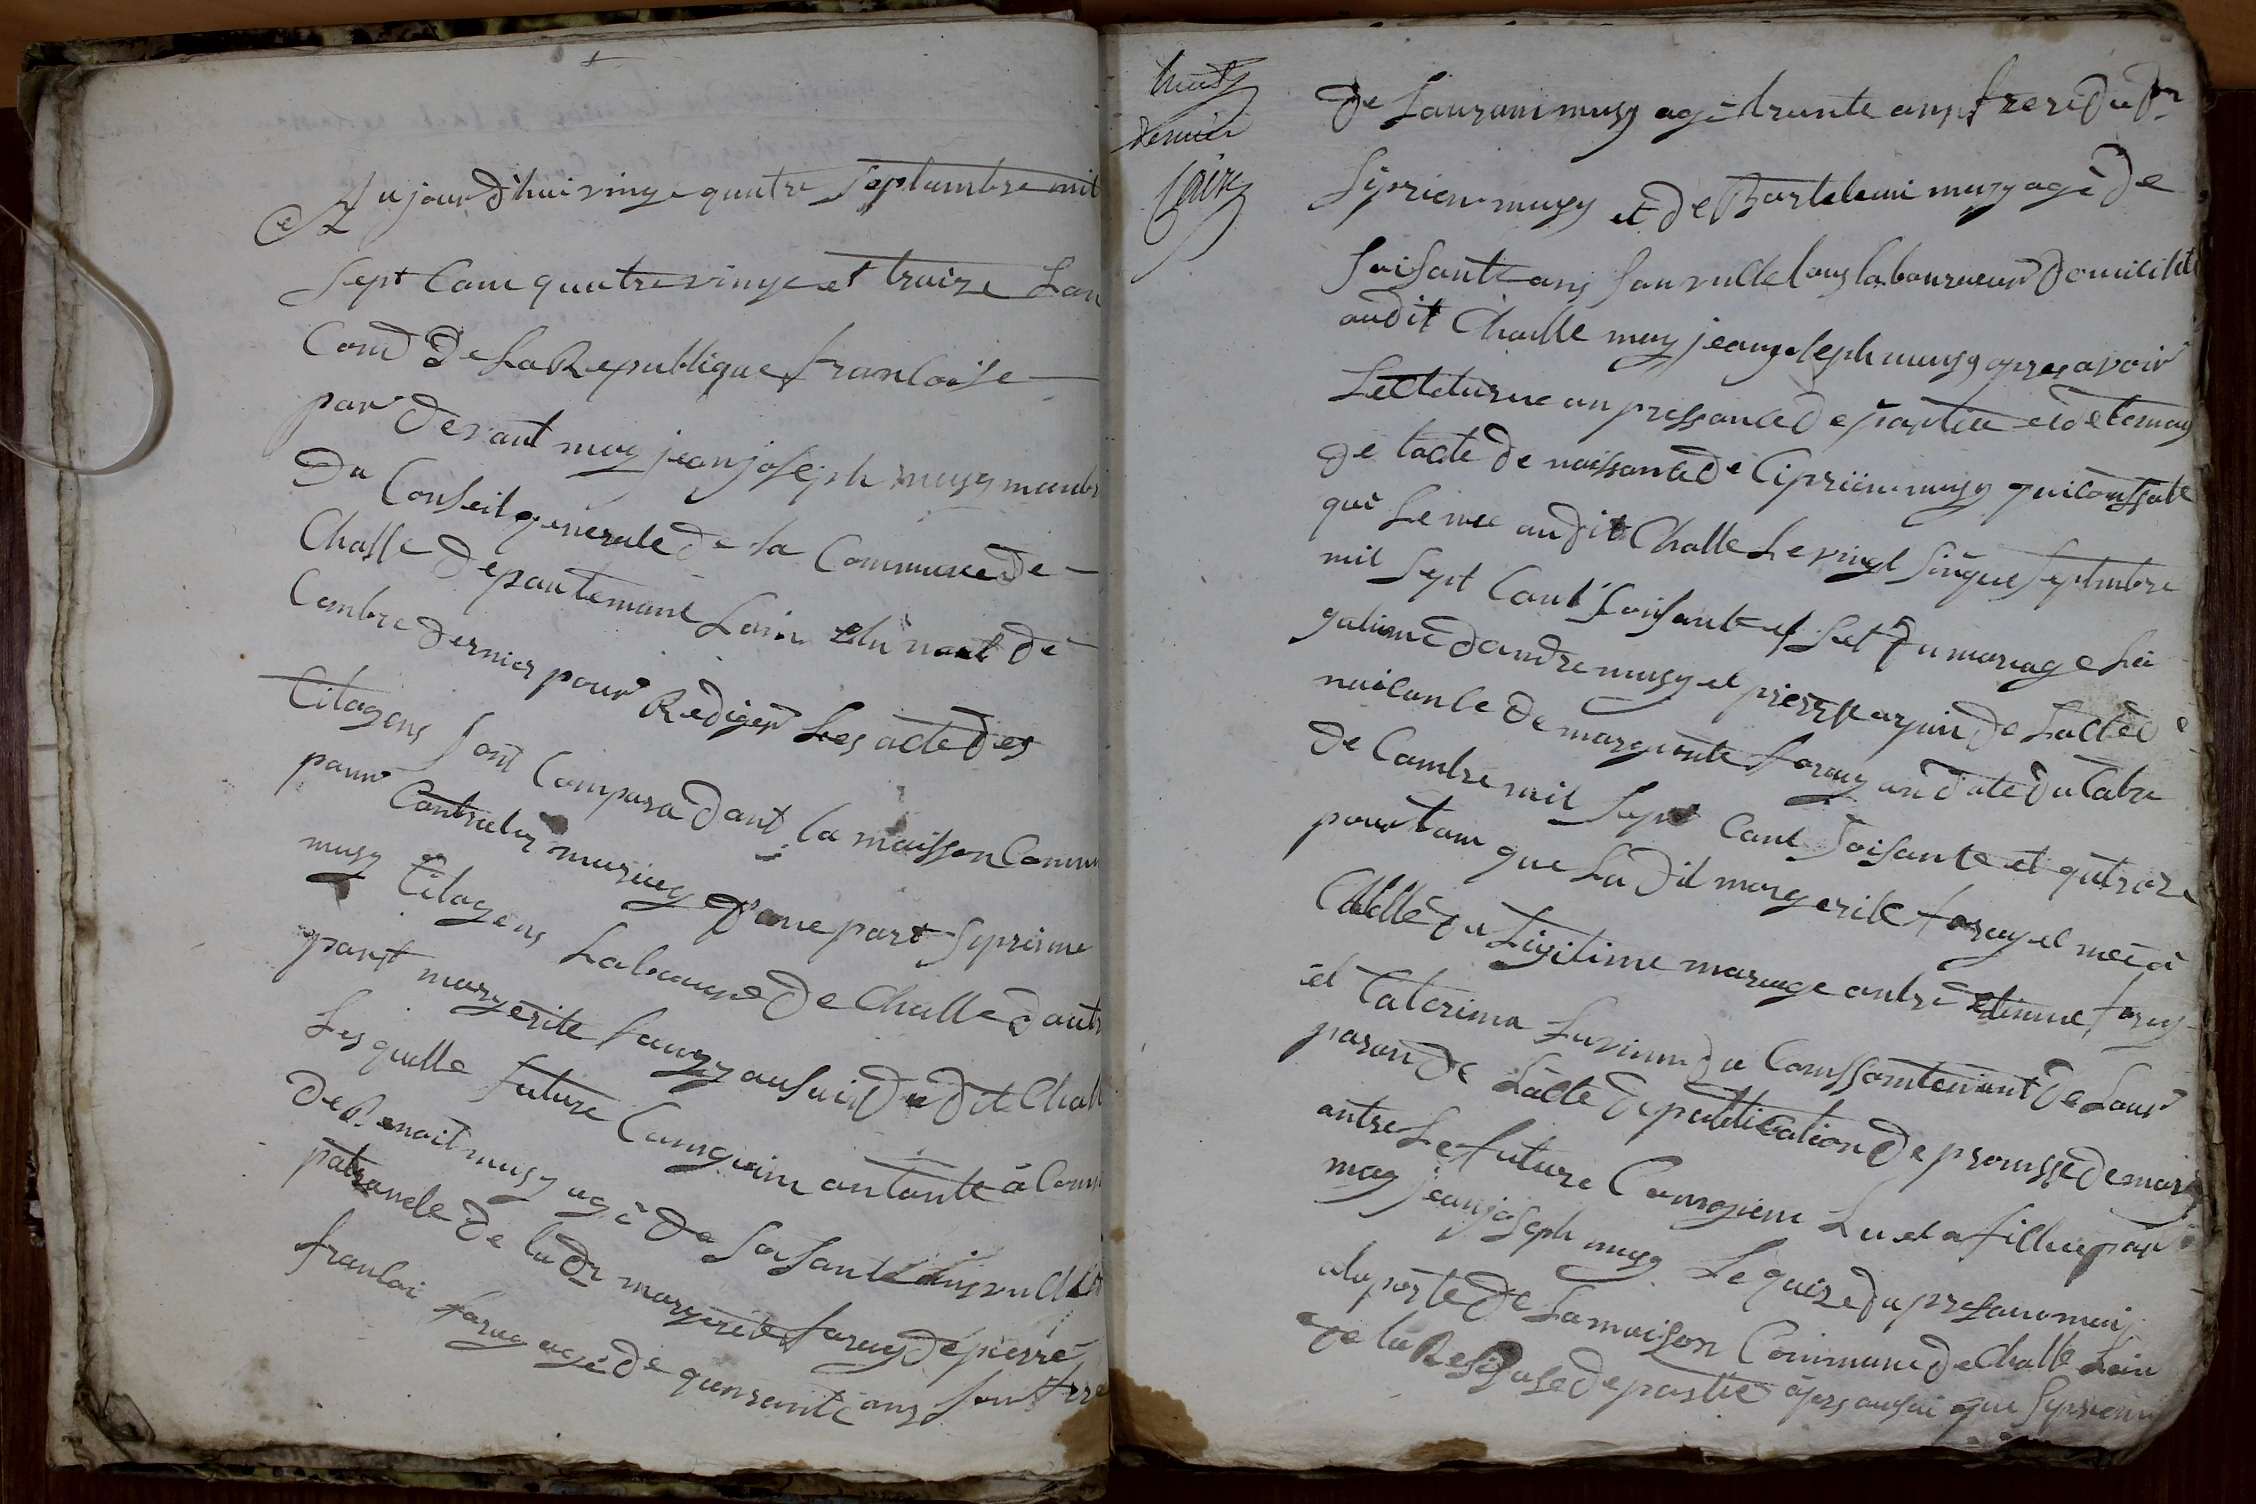 Aujourd'hui vingt quatre septambre mil
sept Cam quatre vinge et traize Lan
Cond De La Republique francloise
par devant moy jean joseph musy manbr
Du Conseil generale de la Commune de
Challe Departemant Lain Elu naut dé
Cembre dernier pour Rediger Les acte Des
Citoyens sont Compara dant la maisson Comm
pour Contracter mariage d'une part Siprienne
musy Citoyens Laboureur De Challe d'autr
part margerite faray ausui Du dit Chall
Lesquelle future Conjoin
De Benoit musy agé de Soisante ans
patronele de lad. margerite faray de pierre
franloi faray agé de quarante ans son frere
huits
dernier
de Laurani musy agé trante ans frere du d.
Siprien musy et de Bartelemi musy agé de
Soisante ans laboureur domicilié
audit Challe moy jean joseph musy apres avoir
Lectturue an pressance de partie et de temoy
de lacte de naissance de Ciprien musy qui conssate
que Le nee audit Challe Le vingt sinque septembre
mil sept Cant Soisante et set du mariage Lei
gatime d'andre musy et pierrette arpin de Lacte dé
naicance de margerite faray an date du Catre
de Cambre mil sept Cant Soisante et qutroze
portam que La dit margerite faray et neé à
Challe du Ligitime mariage antre étienne faray
et Caterina du Conssantemant de Leur
paran de Lacte de publication de promsse de maria
antre Le future Conjoiene Lu et afillue par
moy jean joseph musy
a la porte De La maison Commune de Challe Lain
de la de partie que Siprienne